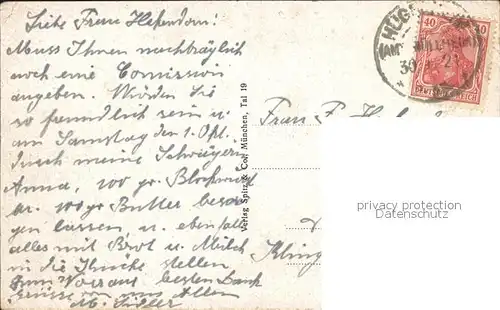 Liebe Frau Hefendorn:
Muss Ihnen nachträglich
noch eine Comission
angeben. Würden Sie
so freundlich sein u.
am Samstag den 1. Okt.
durch meine Schwägerin
Anna, 100 gr. Blockwurst
100 gr Butter besor-
gen lassen, u. ebenfalls
alles mit Brot u. Milch
in die Küche stellen
Zum Voraus besten Dank
Grüsse von uns Allen
M.
Verlag Spitz & Co., München, Tal 19
Frau F.
Kling
40 40
30 21
privacy protection
Datenschutz